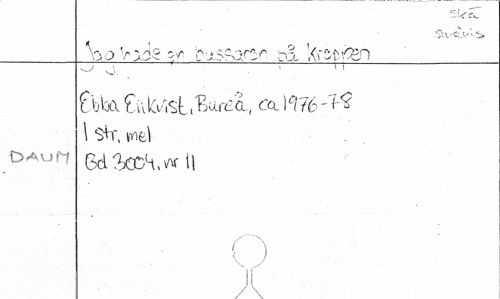 skä
svävis
Jag hade en bussaron på kroppen
Ebba Eilkvist, Bureå, ca 1976-78
1 str, mel
DAUM Bd 3004, nr 11